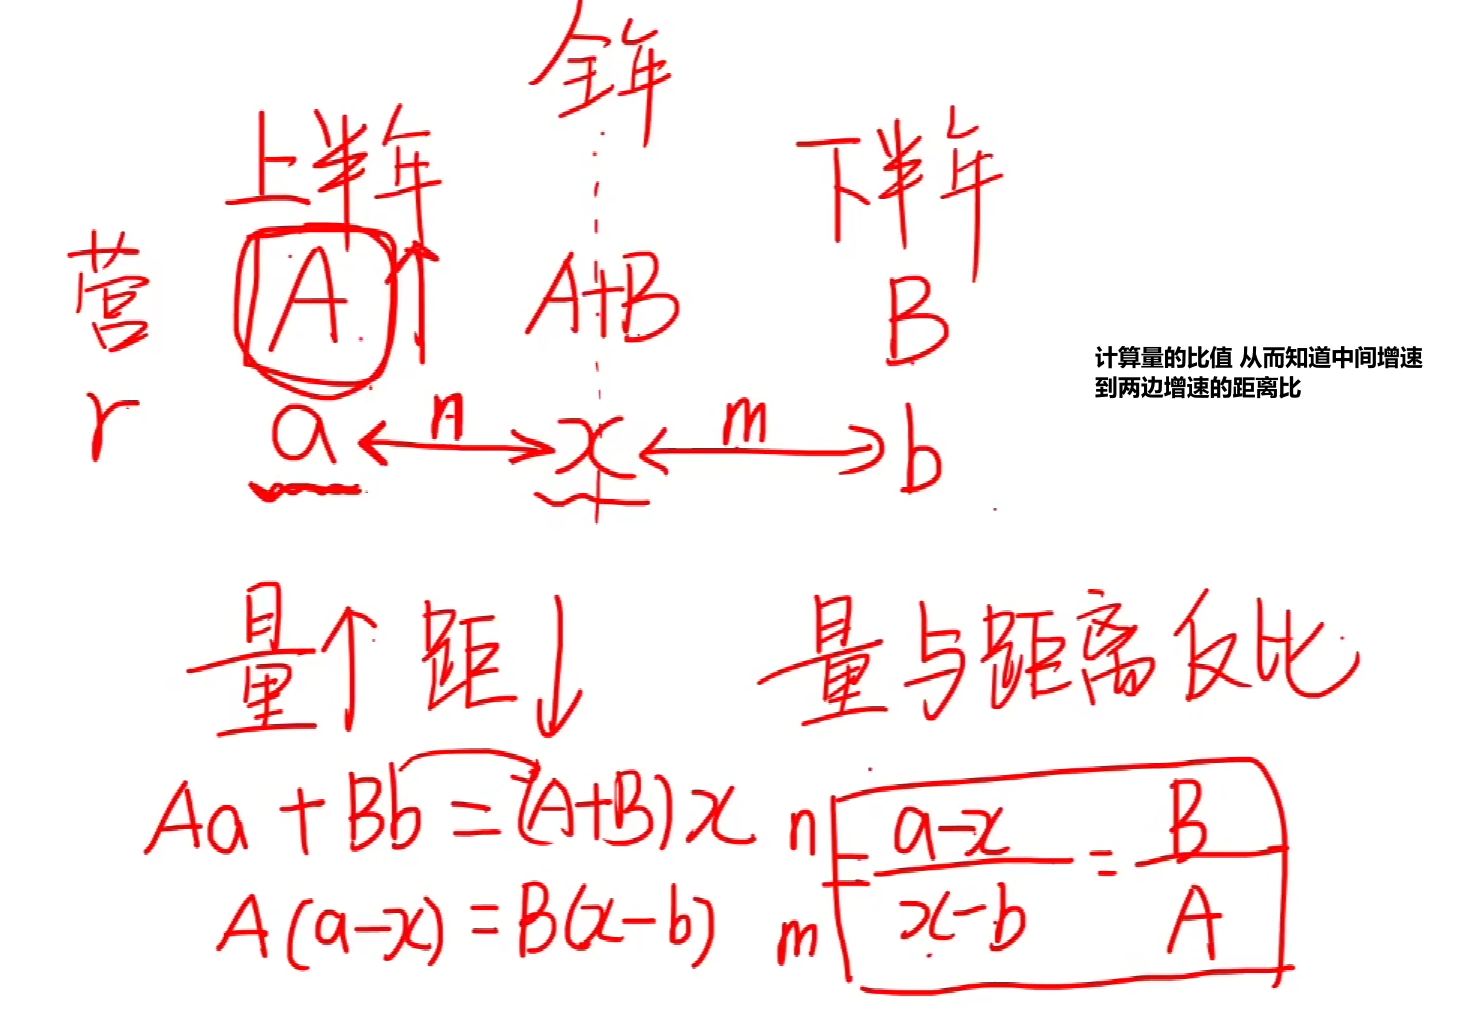 全年
上半年 下半年
营 A ↑ A+B B
计算量的比值 从而知道中间增速
到两边增速的距离比
r a n x m b
量↑ 距↓ 量与距离反比
Aa + Bb = (A+B)x
A(a-x) = B(x-b)
n/m = (a-x)/(x-b) = B/A